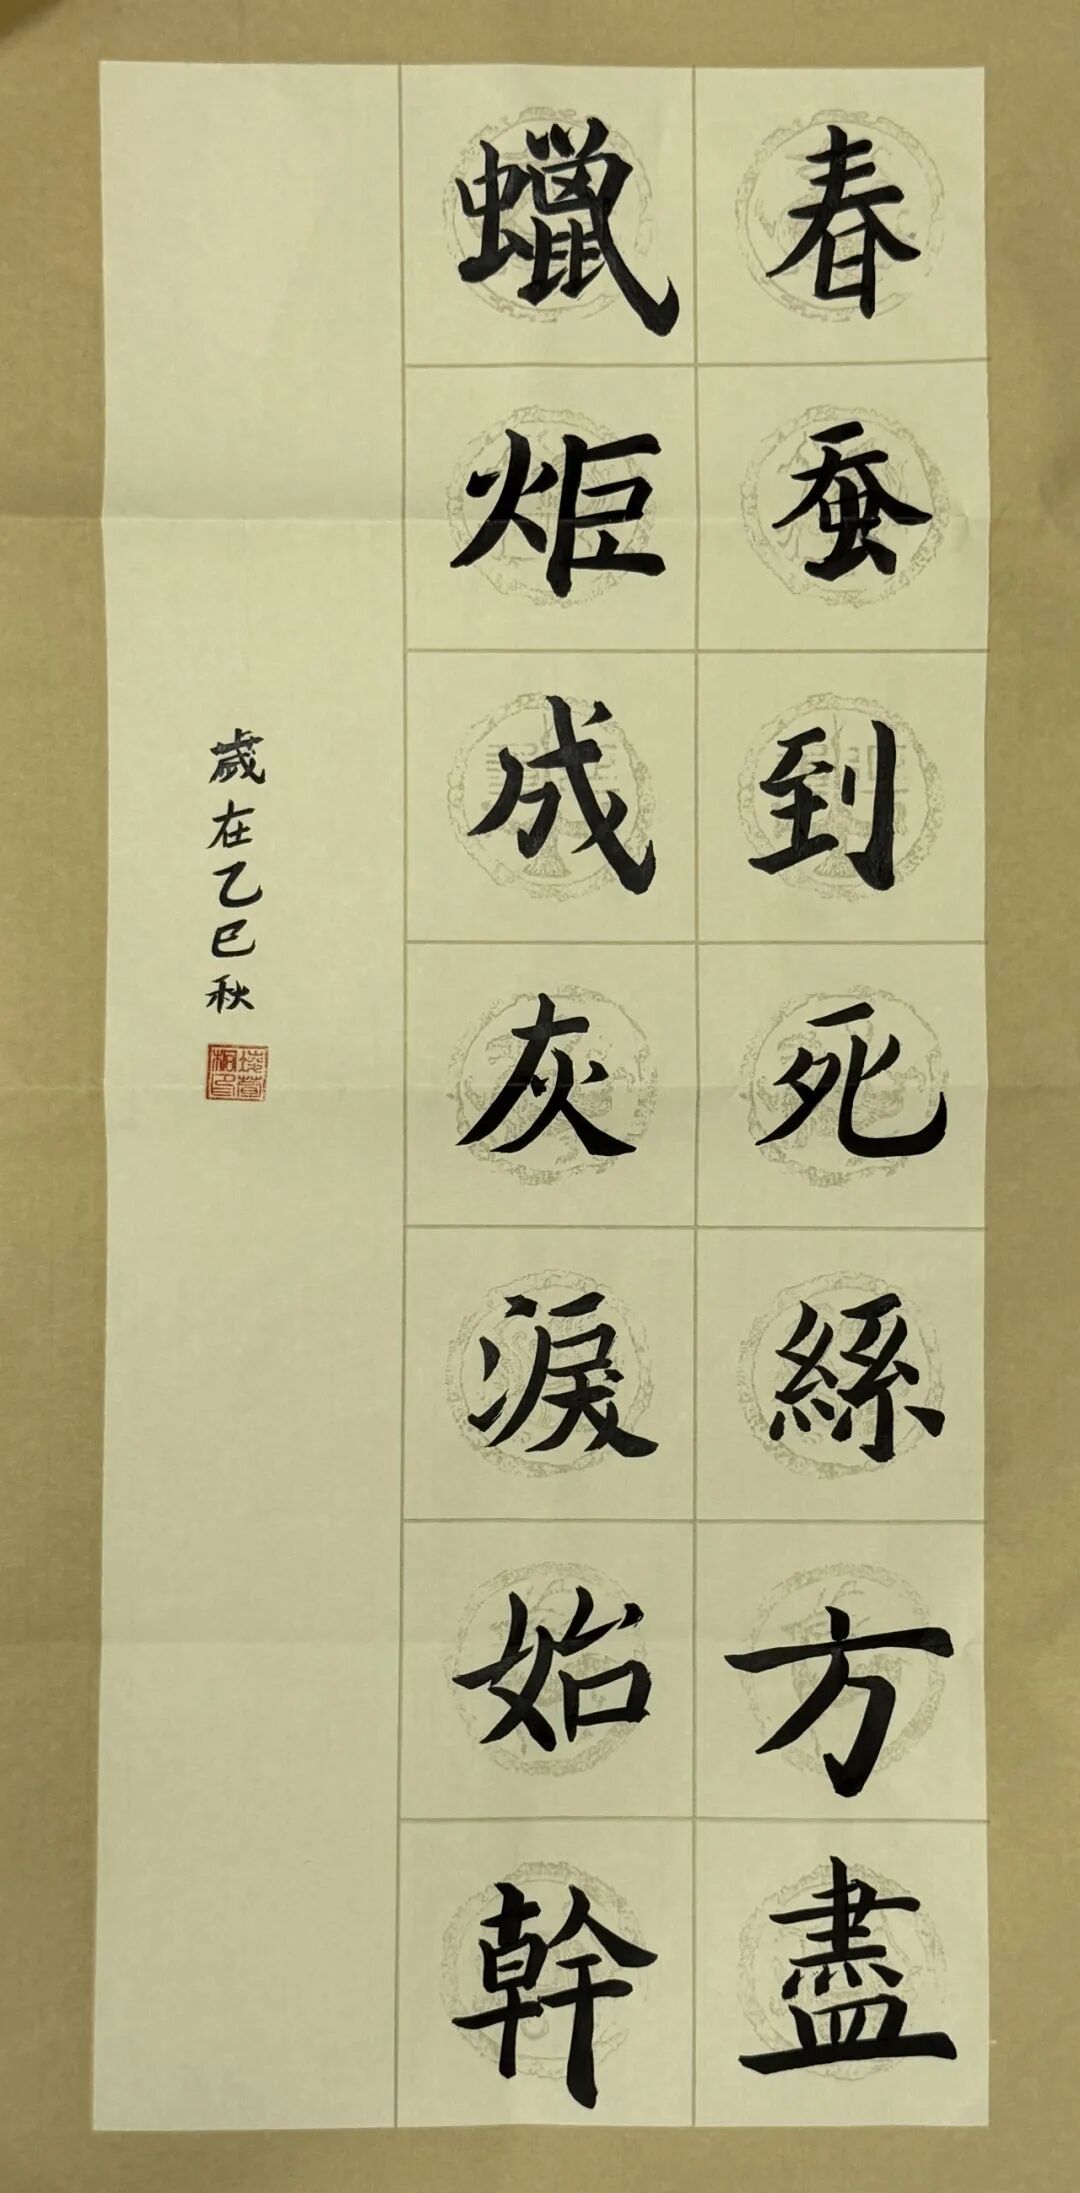 春蚕到死絲方盡
蠟炬成灰淚始幹
歲在乙巳秋